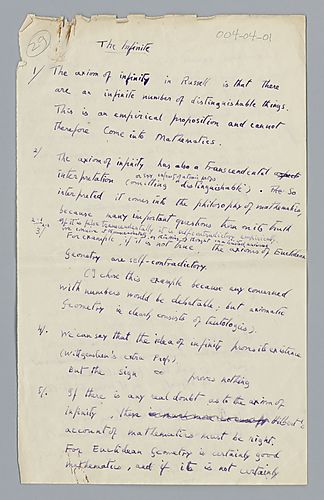 29
004-04-01
The Infinite
1/ The axiom of infinity in Russell is that there
are an infinite number of distinguishable things.
This is an empirical proposition and cannot
therefore come into Mathematics.
2/ The axiom of infinity has also a Transcendental
interpretation (omitting "distinguishable"). So
interpreted it comes into the philosophy of mathematics,
because many important questions turn on its truth
3/ For example, if it is not true, the axioms of Euclidean
Geometry are self-contradictory.
(I chose this example because any concerned
with numbers would be debatable; but axiomatic
Geometry clearly consists of tautologies).
4/. We can say that the idea of infinity proves its existence
(Wittgenstein's extra
But the sign ∞ proves nothing
5/. If there is any real doubt as to the axiom of
infinity, then Hilbert's
account of mathematics must be right.
For Euclidean Geometry is certainly good
mathematics, and if it is not certainly